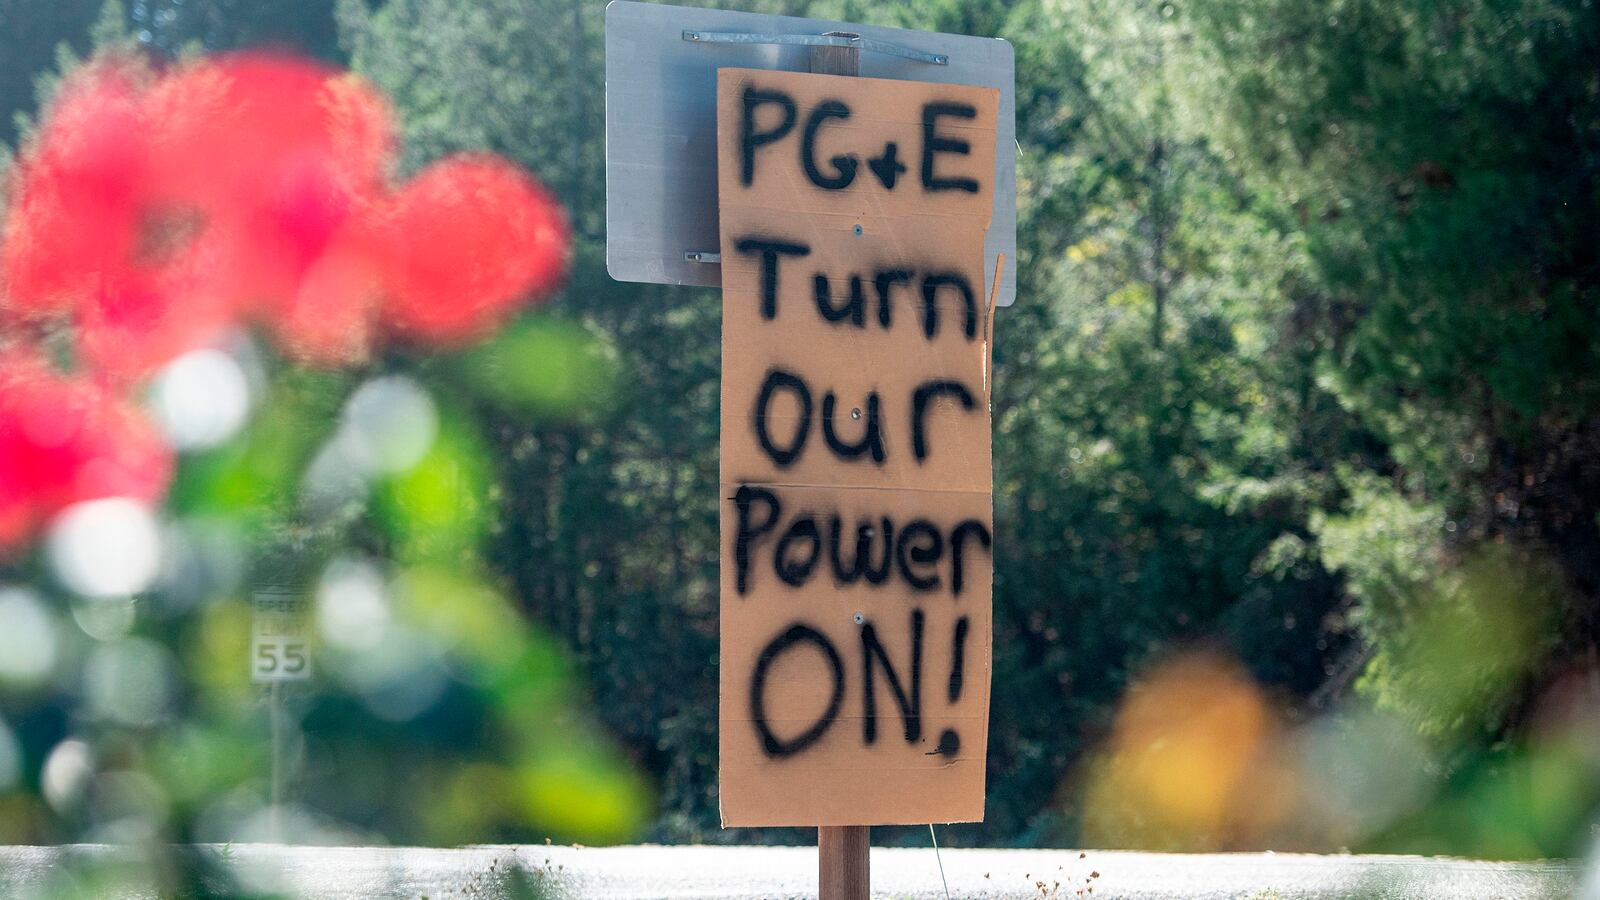 PG+E
Turn
our
Power
ON!
SPEED
LIMIT
55